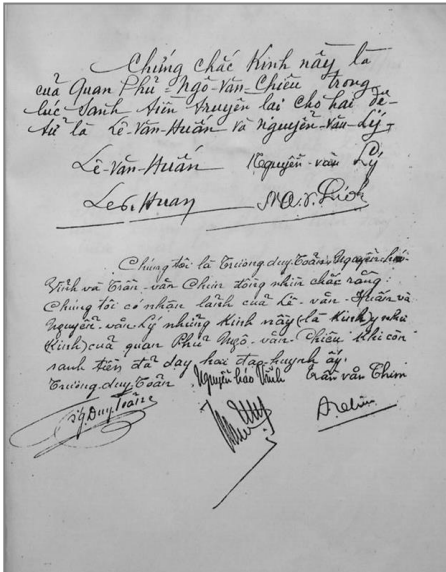 Chứng chắc Kinh nầy là
của Quan Phủ - Ngô-Văn-Chiêu trong
lúc Sanh tiền truyền lại cho hai đệ-
tử là Lê-Văn-Huấn và Nguyễn-văn-Lý.
Lê-Văn-Huấn Nguyễn-văn Lý
Lev. Huan
Chúng tôi là Trương duy Toản, Nguyễn háo
Vĩnh và Trần-văn Chim đồng nhìn chắc rằng
Chúng tôi có nhận lãnh của Lê-văn-Huấn và
Nguyễn-văn-Lý những Kinh nầy (là Kinh
Kinh) của quan Phủ Ngô-văn-Chiêu khi còn
sanh tiền đã dạy hai đạo huynh ấy.
Trương duy Toản Nguyễn háo Vĩnh Trần văn Chim
Duy Toản